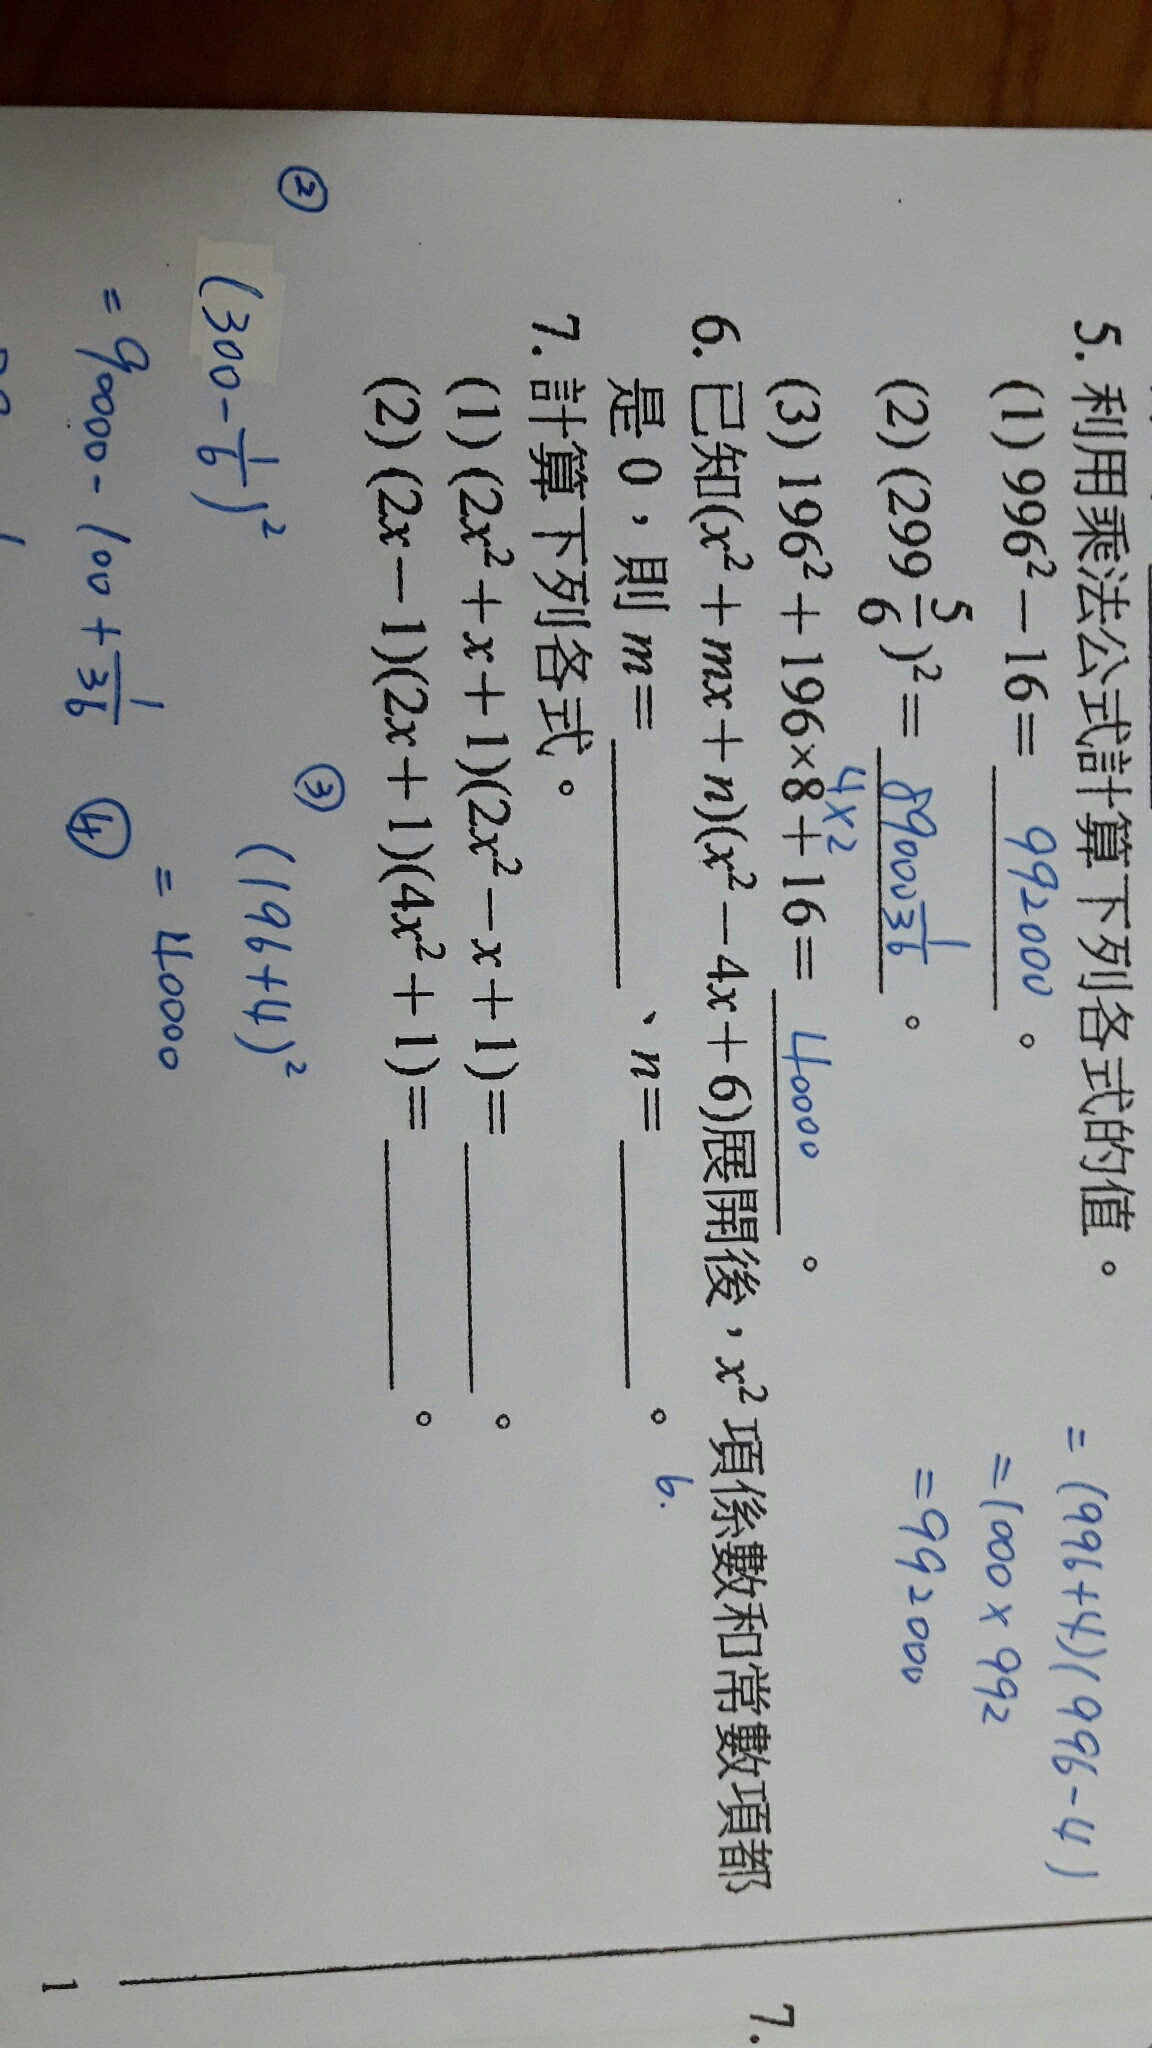 5. 利用乘法公式計算下列各式的值。
(1) 996² − 16 = 992000 。
= (996+4)(996-4)
= 1000 × 992
= 992000
(2) (299 5/6)² = 89900 1/36 。
(3) 196² + 196×8 + 16 = 40000 。
4×2
6. 已知(x² + mx + n)(x² − 4x + 6)展開後，x² 項係數和常數項都
是 0，則 m = ________ 、n = ________ 。
6.
7. 計算下列各式。
(1) (2x² + x + 1)(2x² − x + 1) = ________ 。
(2) (2x − 1)(2x + 1)(4x² + 1) = ________ 。
②
(300 - 1/6)²
= 90000 - 100 + 1/36
③
(196+4)²
= 40000
④
7.
1